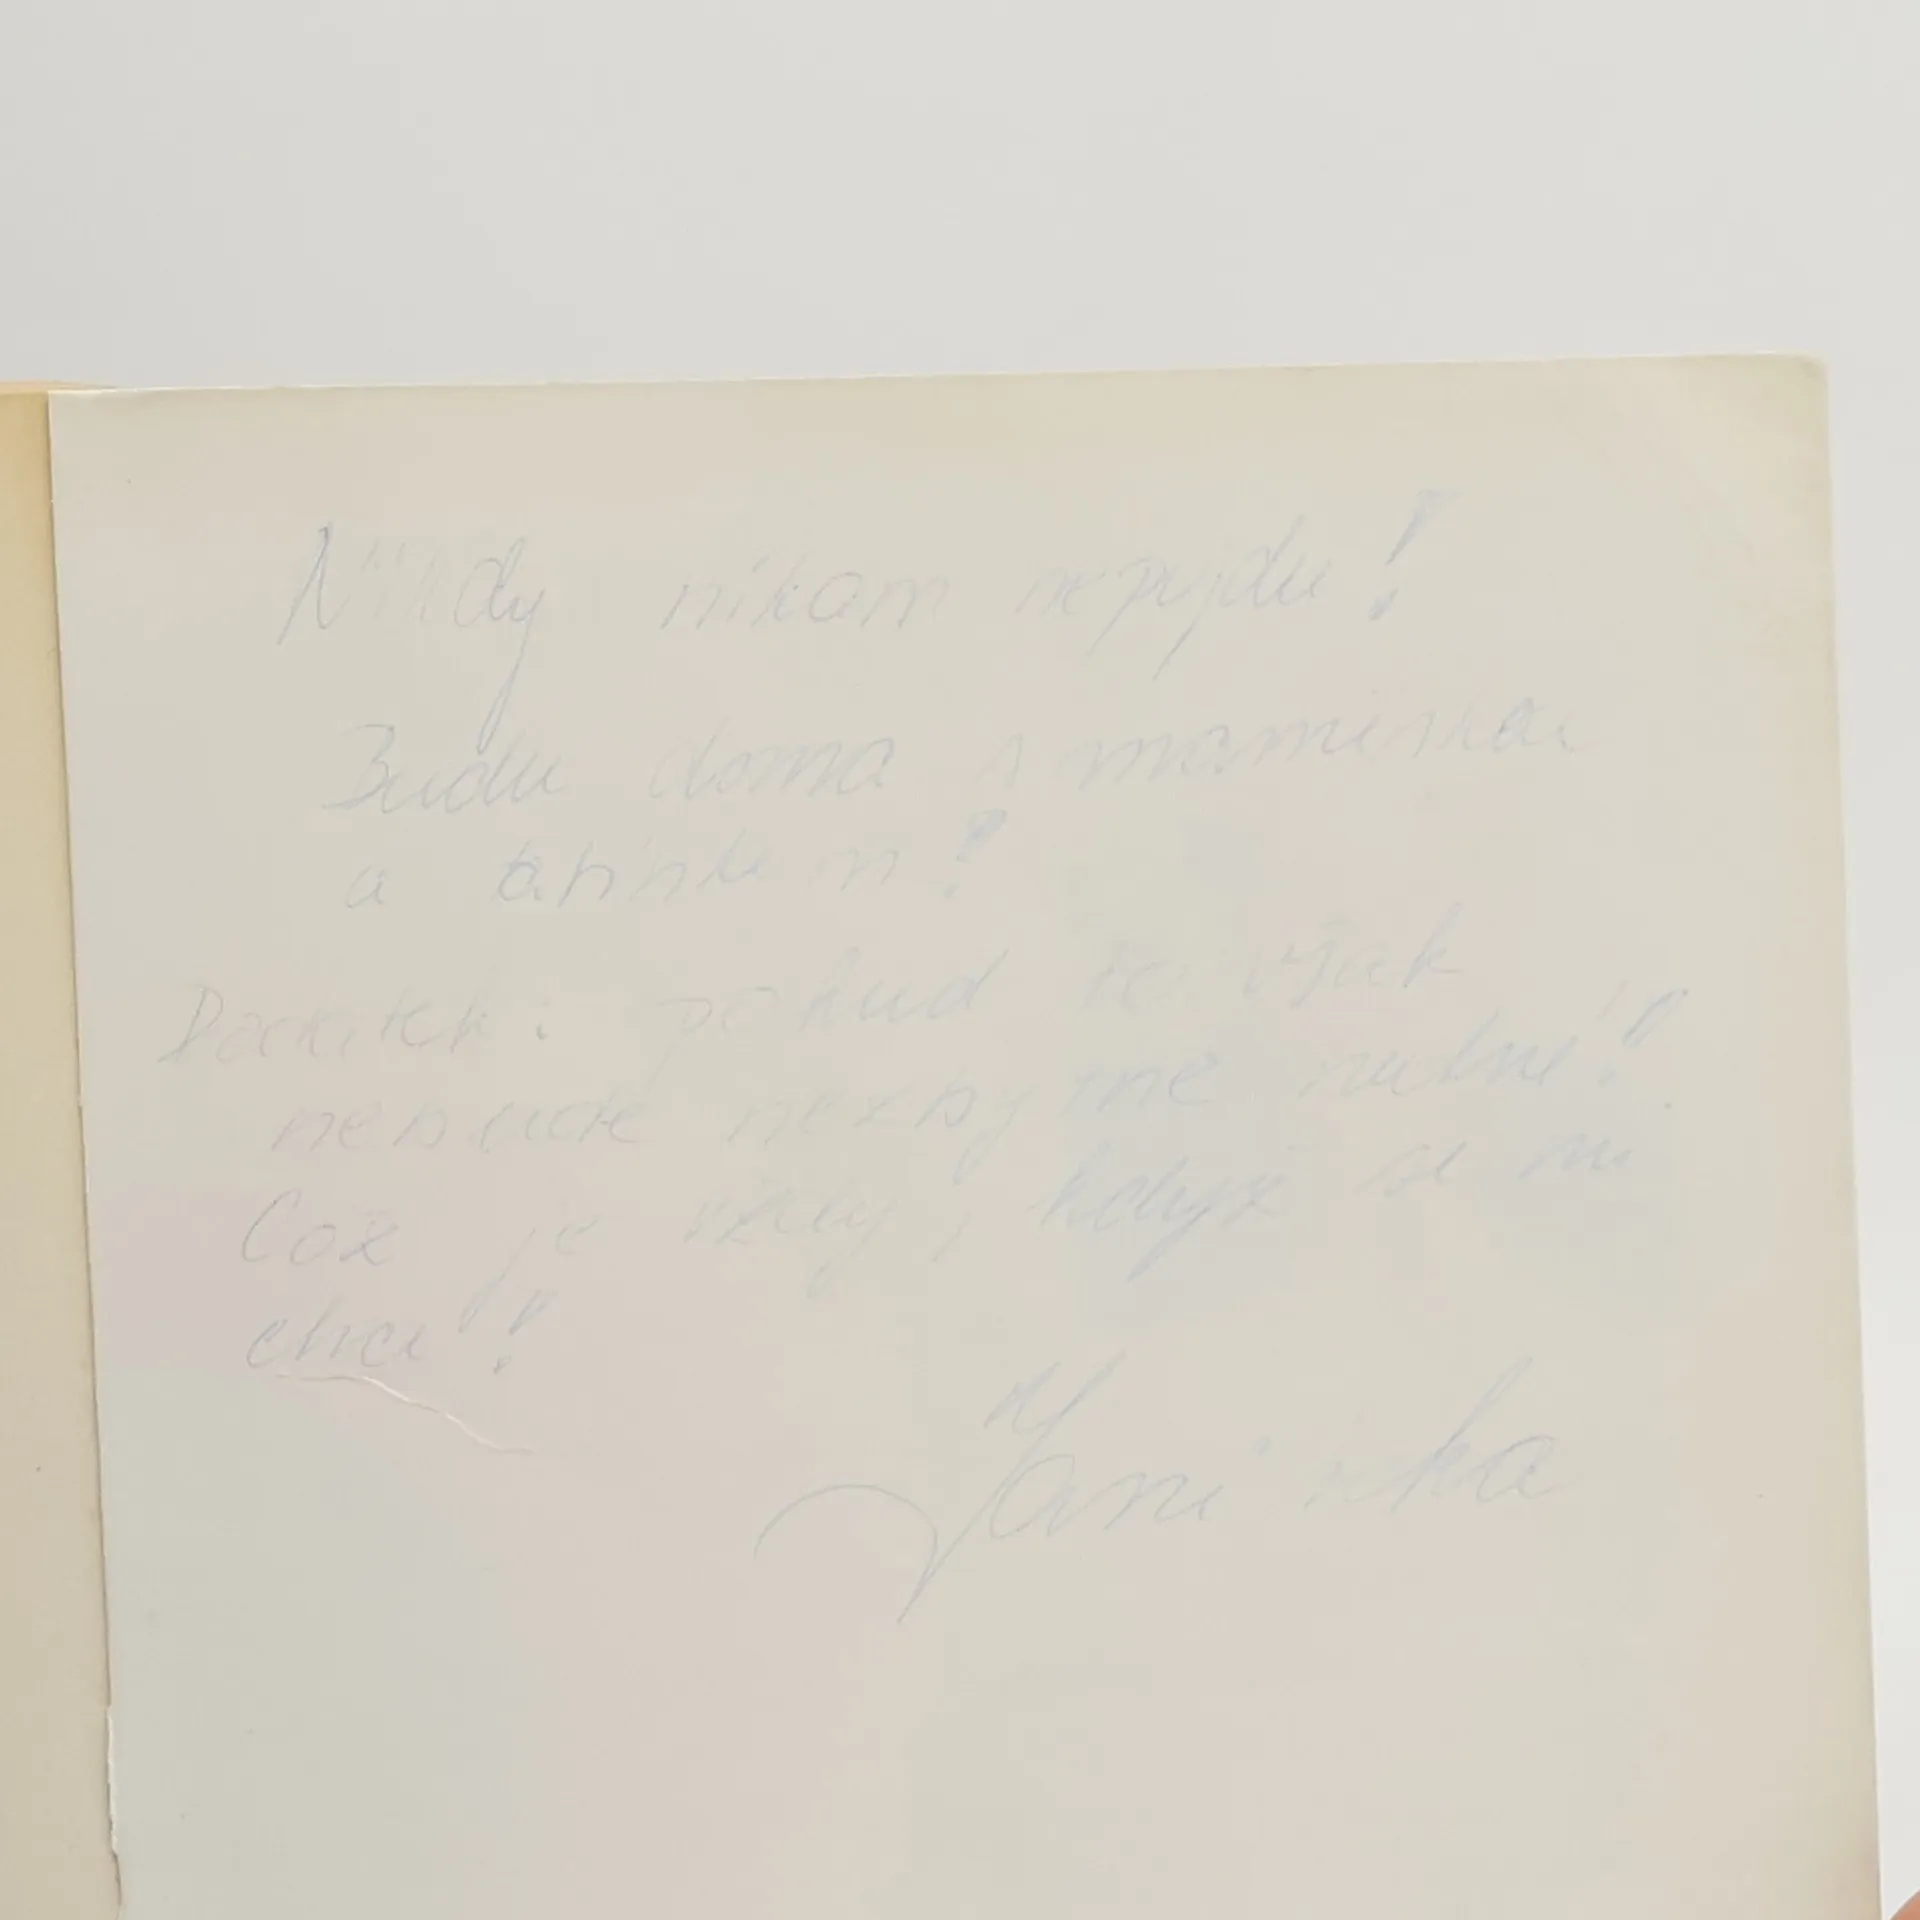 Nikdy nikam nepujdu!
Budu doma s maminkou
a tatínkem!
Dodatek: pokud to však
nebude nezbytně nutné!
Což je vždy, když se mi
chce!!
Janinka